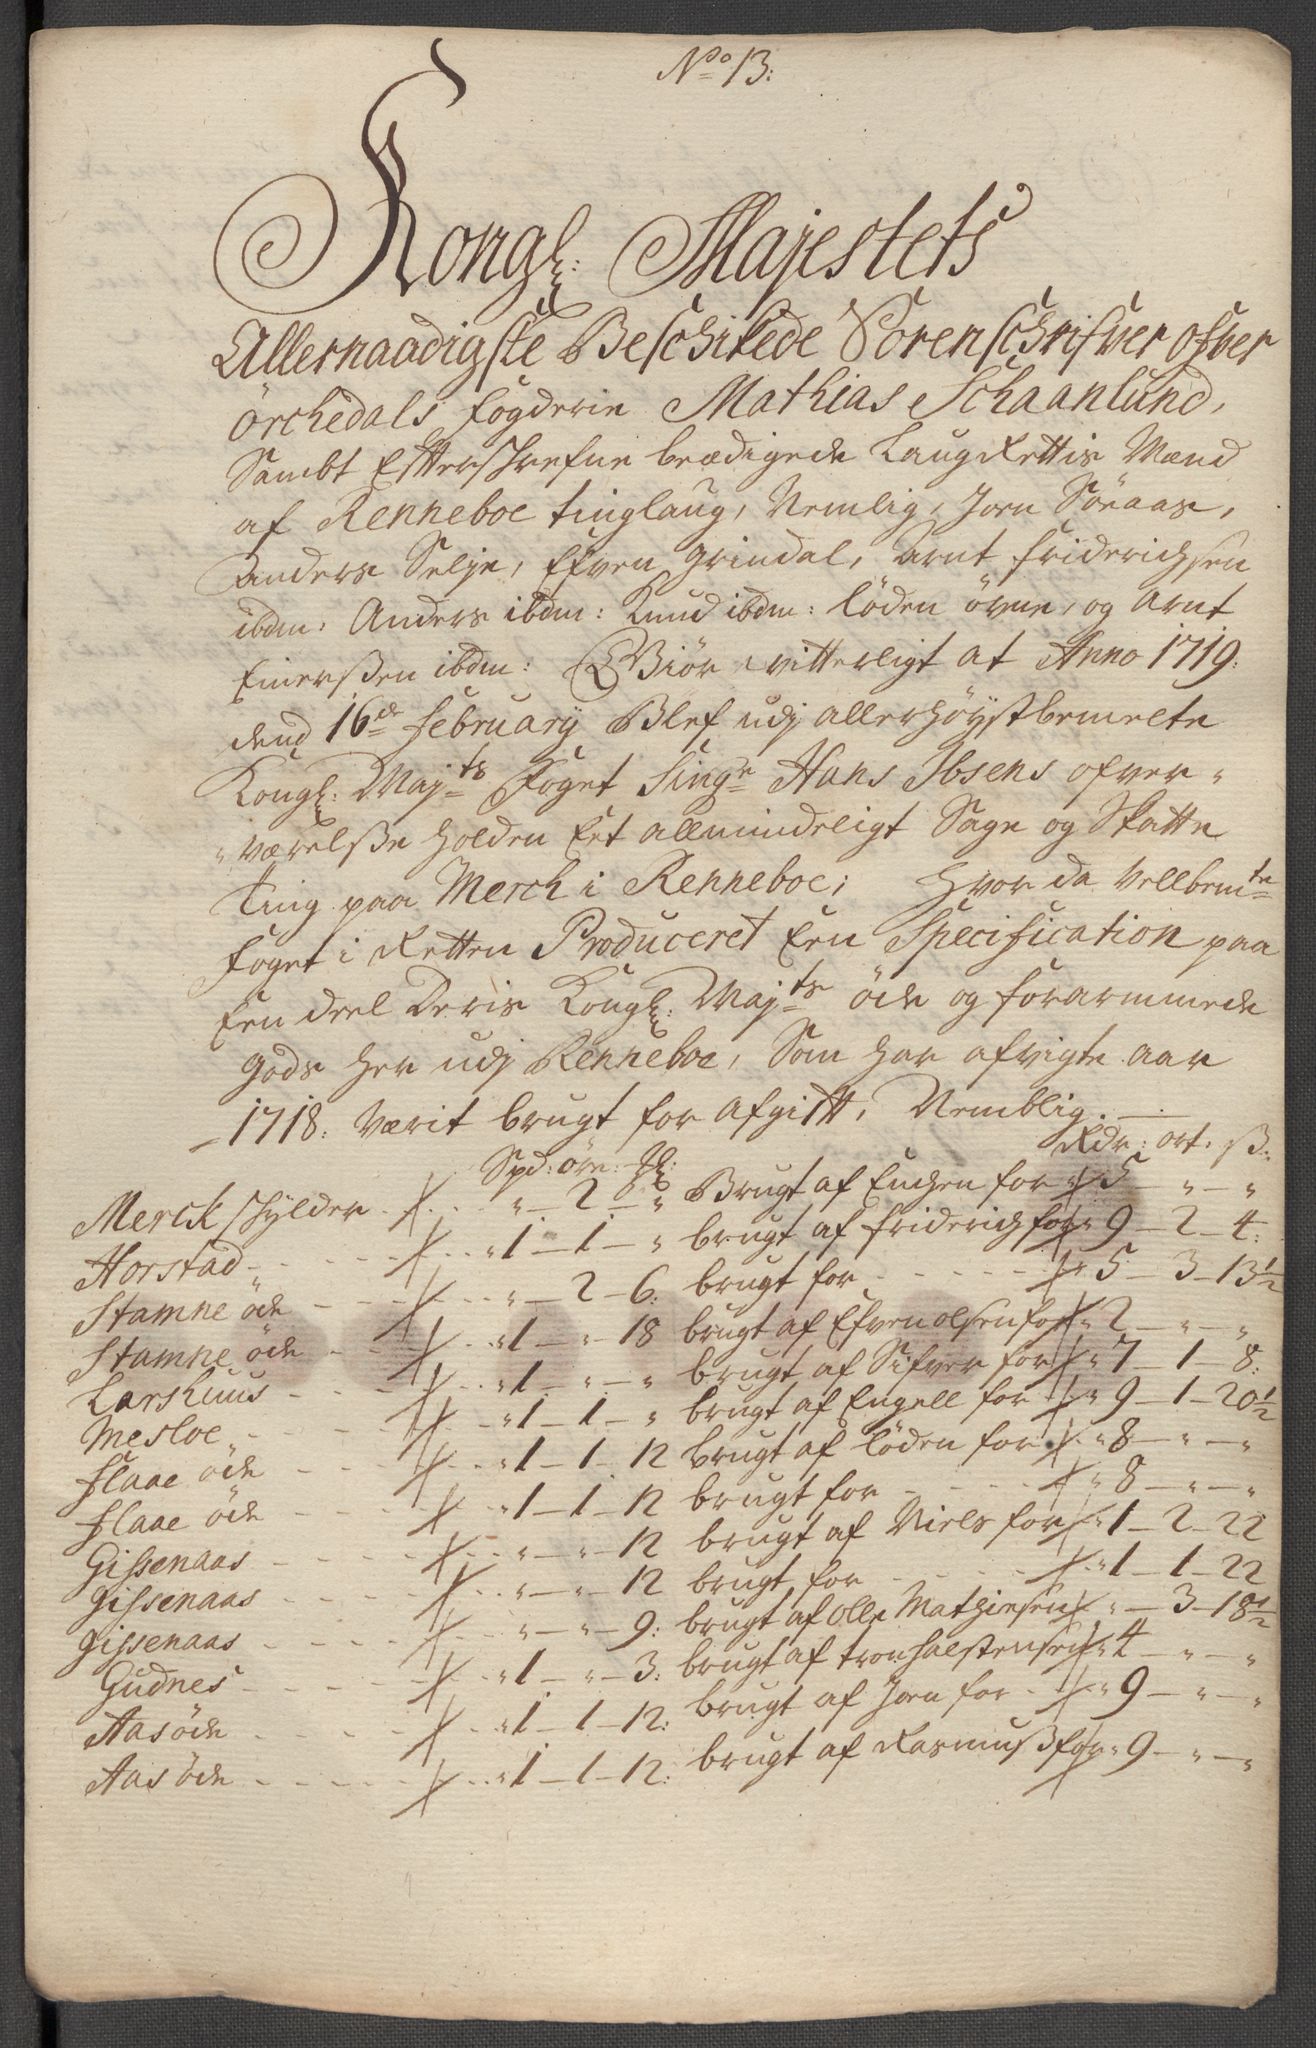 No 13:
Kongl: Majestets
Allernaadigste Beschikede Sorenschrifver ofver
örchedals fogderie Mathias Schaanlund,
Sambt Efterschrefne beædigede LaugRettis Mænd
af Renneboe tinglaug, Nemlig, Joen Söraas,
Anders Selje, Efven grindal, Arnt friderichsen
ibdm: Anders ibdm: Knud ibdm: löden örne, og Arnt
Einerßen ibdm: Giör vitterligt at Anno 1719:
dend 16de february Blef udj allerhöystbemelte
Kongl: Majts foget Singr Hans Ibsens ofver-
værelße holden Eet allmindeligt Sage og Skatte
Ting paa Merch i Renneboe; hvor da Vellbemte
foget i Retten Produceret Een Specification paa
Een deel Deris Kongl: Majts öde og forarmmede
gods her udj Renneboe, Som har afvigte aar
1718: værit brugt for afgift, Nemblig.
Rdr: ort: ß:
Spd: öre: Ml:
Merck schylder " 2 " Brugt af Euchen for 5 — " — "
Horstad 1 — 1 — " brugt af friderich for 9 — 2 — 4:
Stamne öde " — 2 — 6: brugt for 5 — 3 — 13½
Stamne öde 1 — " — 18 brugt af Efven olsen for 2 — " — "
Larshuus 1 — " — " brugt af Sifver for 7 — 1 — 8:
Mesloe 1 — 1 — " brugt af Engell for 9 — 1 — 20½
flaae öde 1 — 1 — 12 brugt af löden for 8 — " — "
flaae öde 1 — 1 — 12 brugt for 8 — " — "
Gissenaas " — " — 12 brugt af Niels for 1 — 2 — 22
gissenaas " — " — 12 brugt for 1 — 1 — 22
gissenaas " — " — 9: brugt af olle Mathiesen " — 3 — 18½
Gudnes 1 — " — 3: brugt af tron halstensen 4 — " — "
Aas öde 1 — 1 — 12: brugt af Joen for 9 — " — "
Aas öde 1 — 1 — 12: brugt af Rasmuß for 9 — " — "